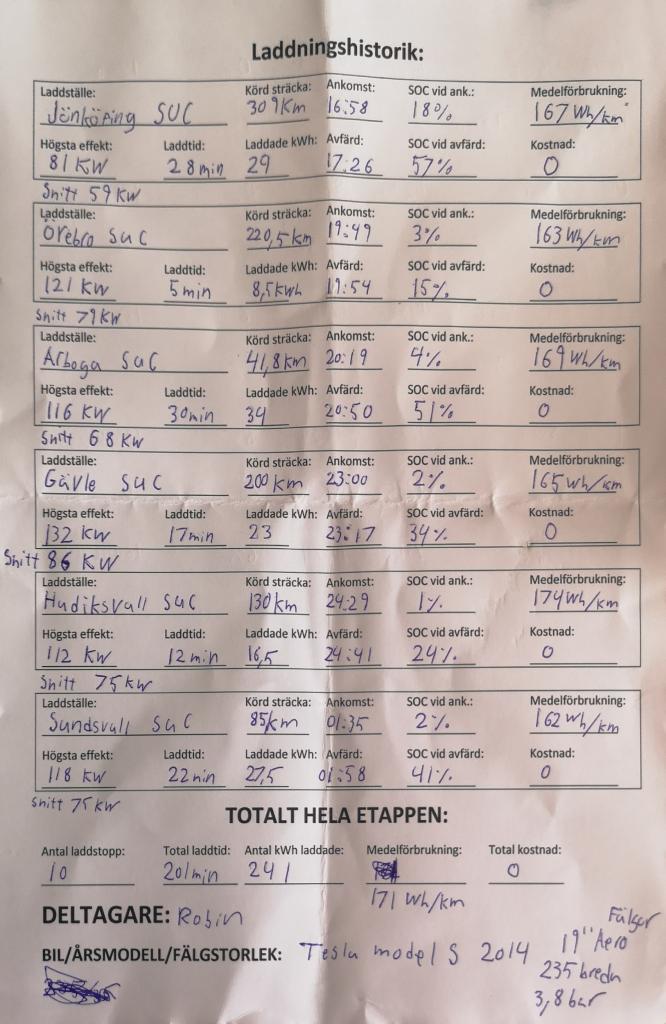 Laddningshistorik:
Laddställe: Körd sträcka: Ankomst: SOC vid ank.: Medelförbrukning:
Jönköping SUC 309Km 16:58 18% 167 Wh/km
Högsta effekt: Laddtid: Laddade kWh: Avfärd: SOC vid avfärd: Kostnad:
81 KW 28min 29 17:26 57% 0
Snitt 59 KW
Laddställe: Körd sträcka: Ankomst: SOC vid ank.: Medelförbrukning:
Örebro SuC 220,5km 19:49 3% 163 Wh/km
Högsta effekt: Laddtid: Laddade kWh: Avfärd: SOC vid avfärd: Kostnad:
121 KW 5min 8,5kWh 19:54 15% 0
Snitt 79 KW
Laddställe: Körd sträcka: Ankomst: SOC vid ank.: Medelförbrukning:
Arboga SuC 41,8km 20:19 4% 169 Wh/km
Högsta effekt: Laddtid: Laddade kWh: Avfärd: SOC vid avfärd: Kostnad:
116 KW 30min 34 20:50 51% 0
Snitt 68 KW
Laddställe: Körd sträcka: Ankomst: SOC vid ank.: Medelförbrukning:
Gävle SuC 200km 23:00 2% 165 Wh/km
Högsta effekt: Laddtid: Laddade kWh: Avfärd: SOC vid avfärd: Kostnad:
132 KW 17min 23 23:17 34% 0
Snitt 86 KW
Laddställe: Körd sträcka: Ankomst: SOC vid ank.: Medelförbrukning:
Hudiksvall SuC 130km 24:29 1% 174Wh/km
Högsta effekt: Laddtid: Laddade kWh: Avfärd: SOC vid avfärd: Kostnad:
112 KW 12min 16,5 24:41 24% 0
Snitt 75KW
Laddställe: Körd sträcka: Ankomst: SOC vid ank.: Medelförbrukning:
Sundsvall SuC 85km 01:35 2% 162 Wh/km
Högsta effekt: Laddtid: Laddade kWh: Avfärd: SOC vid avfärd: Kostnad:
118 KW 22min 27,5 01:58 41% 0
Snitt 75 KW
TOTALT HELA ETAPPEN:
Antal laddstopp: Total laddtid: Antal kWh laddade: Medelförbrukning: Total kostnad:
10 201min 241 0
171 Wh/km
DELTAGARE: Robin
Fälgar
BIL/ÅRSMODELL/FÄLGSTORLEK: Tesla model S 2014 19" Aero
235 breda
3,8 bar